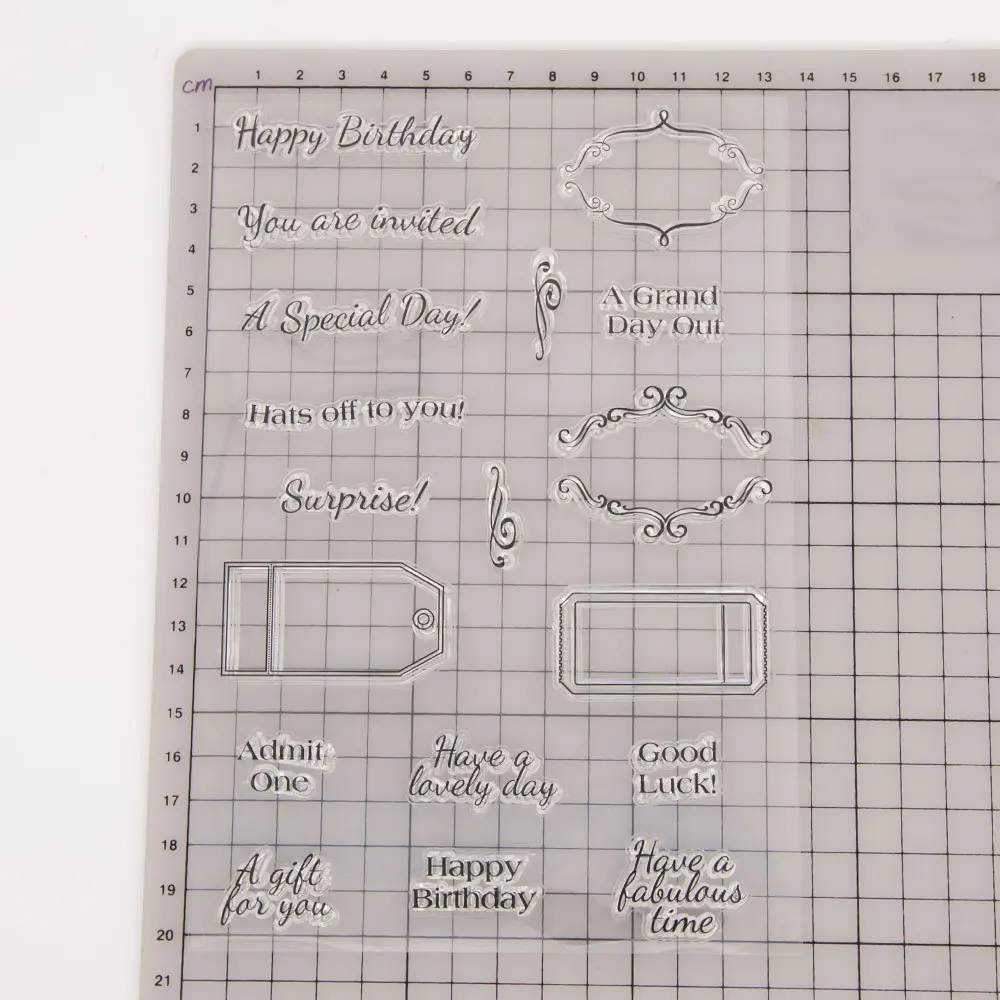 cm
1 2 3 4 5 6 7 8 9 10 11 12 13 14 15 16 17 18
1
Happy Birthday
2
3
You are invited
4
5
A Grand
6
A Special Day!
Day Out
7
8
Hats off to you!
9
10
Surprise!
11
12
13
14
15
16
Admit
One
Have a
lovely day
Good
Luck!
17
18
19
A gift
for you
Happy
Birthday
Have a
fabulous
time
20
21